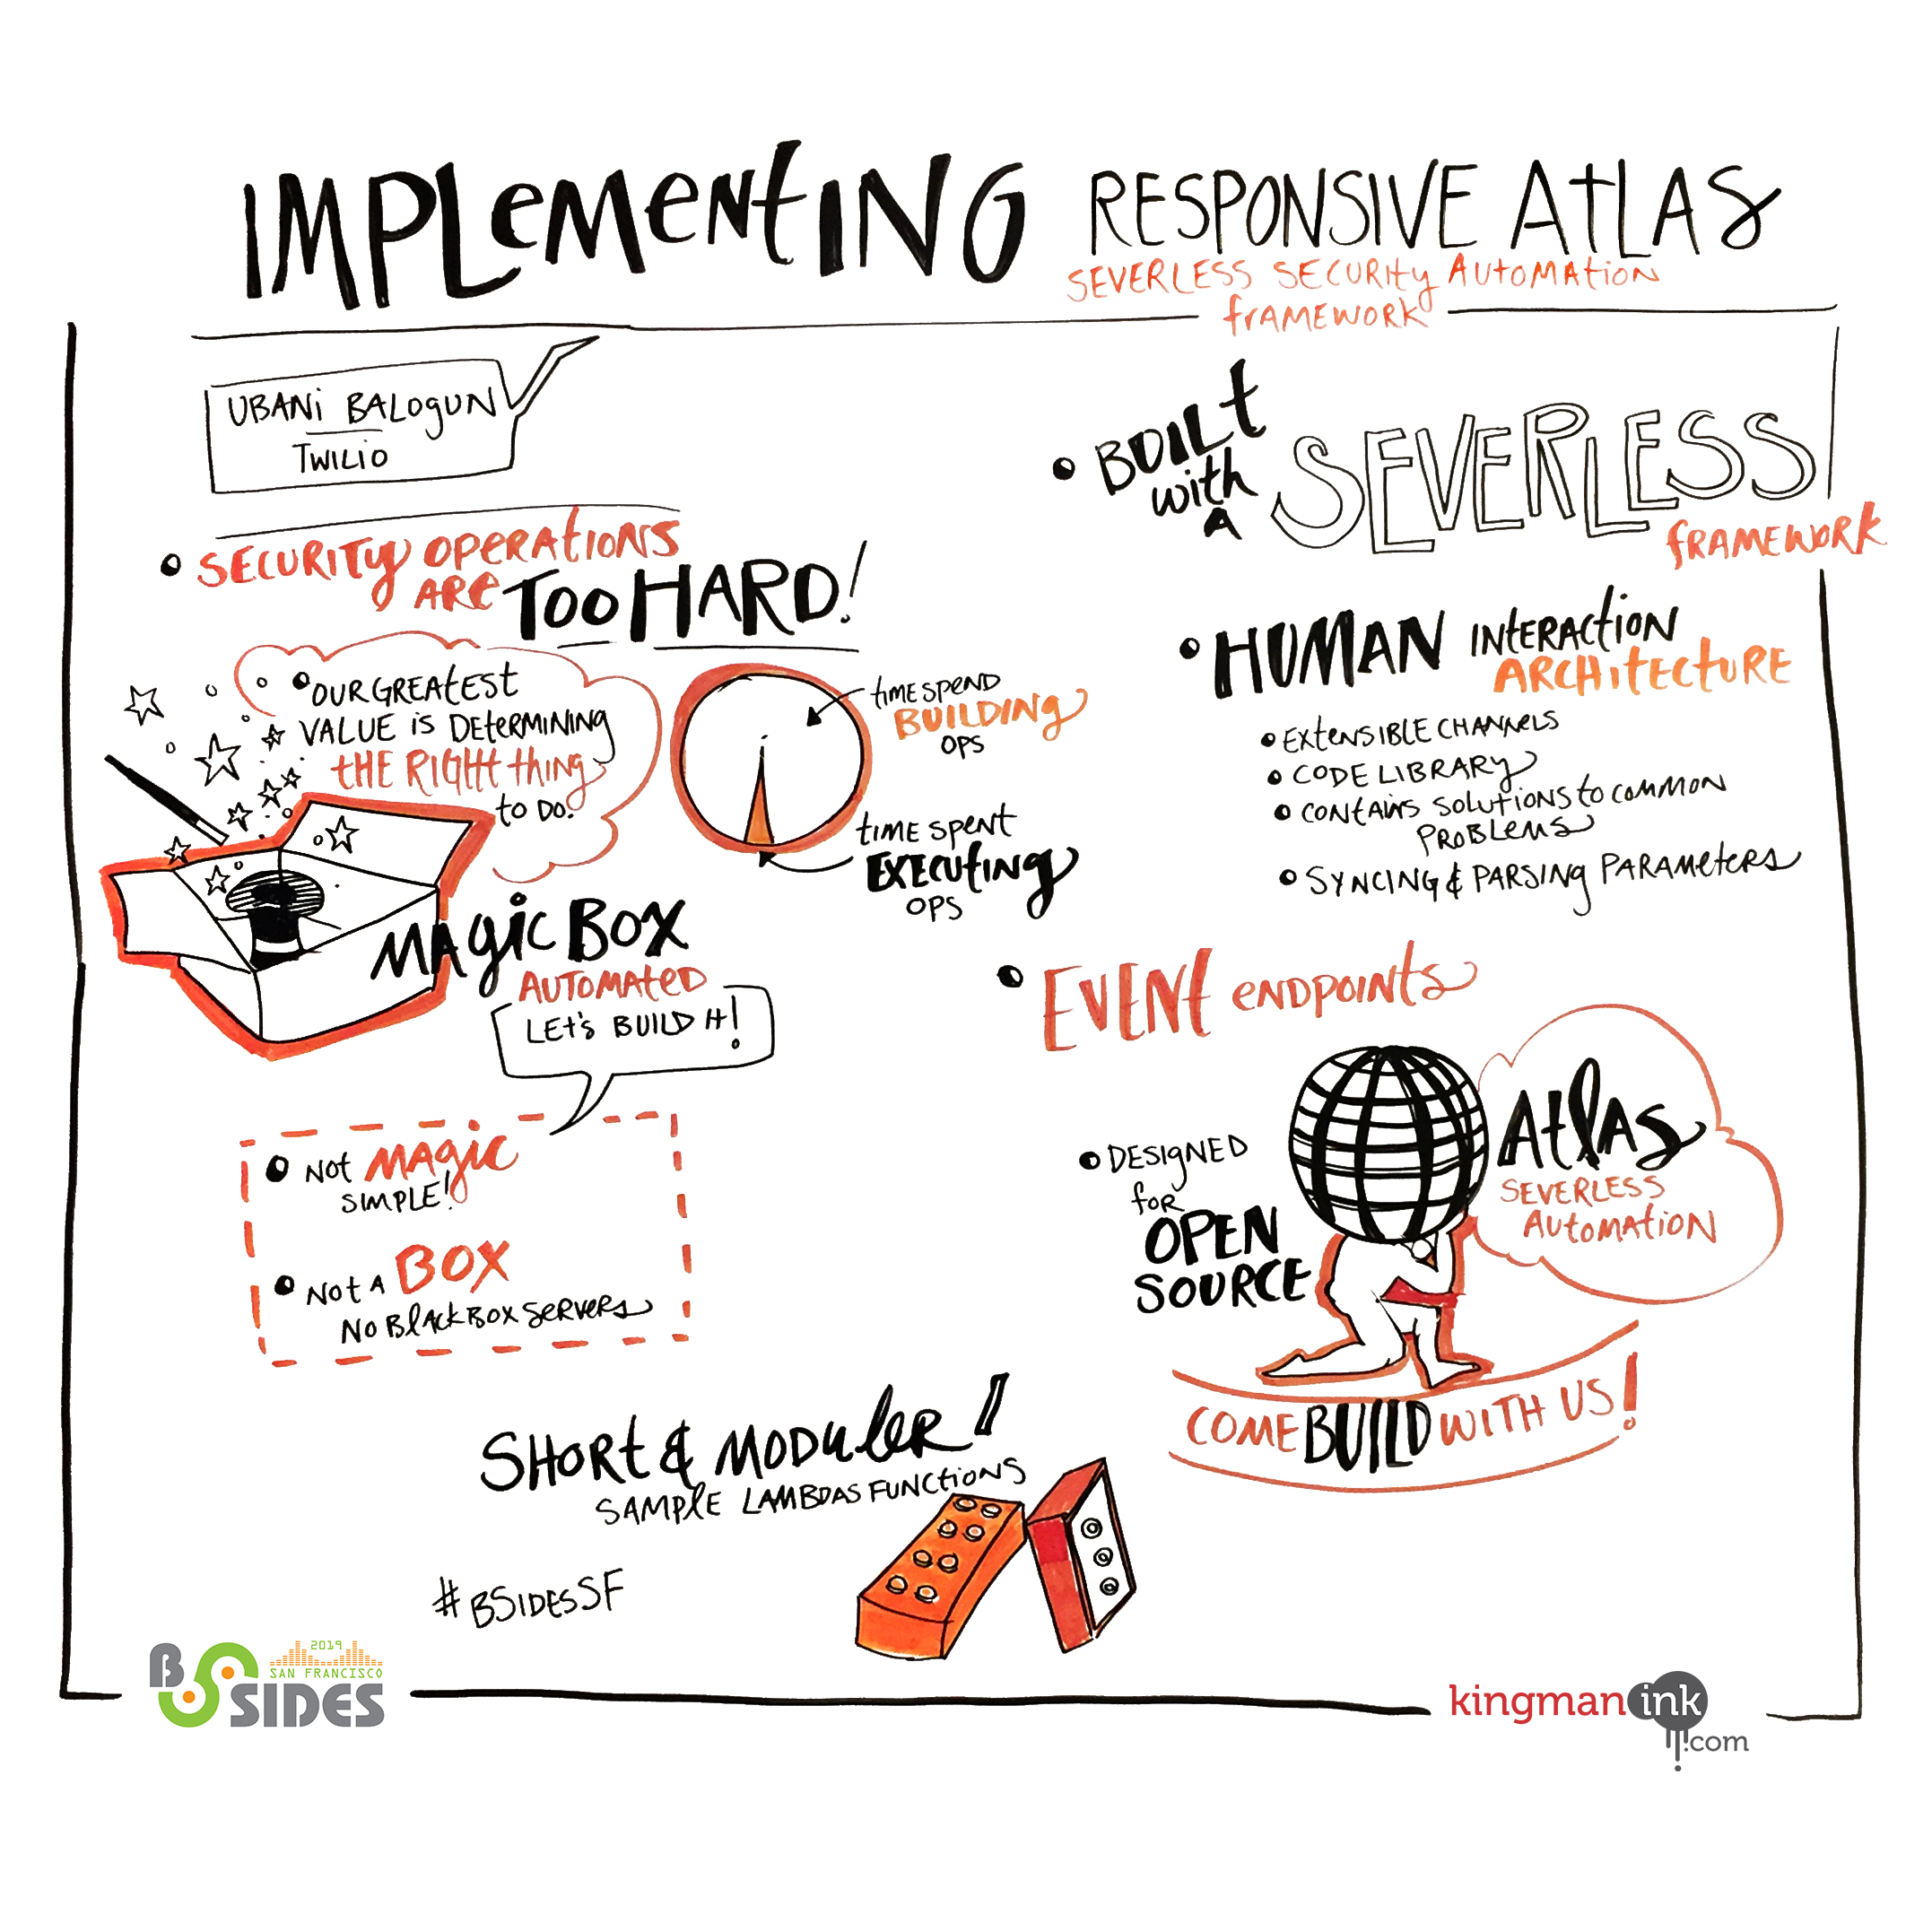 IMPLEMENTING RESPONSIVE ATLAS
SEVERLESS SECURITY AUTOMATION
FRAMEWORK
UBANI BALOGUN
TWILIO
• SECURITY OPERATIONS
ARE TOO HARD!
• OUR GREATEST
VALUE IS DETERMINING
THE RIGHT thing
to DO.
time SPEND
BUILDING
OPS
time SPENT
EXECUTING
OPS
MAGIC BOX
AUTOMATED
LET'S BUILD IT!
• NOT MAGIC
SIMPLE!
• NOT A BOX
NO BLACK BOX SERVERS
SHORT & MODULER!
SAMPLE LAMBDAS FUNCTIONS
#BSIDESSF
• BUILT
with
A
SEVERLESS
FRAMEWORK
• HUMAN INTERACTION
ARCHITECTURE
• EXTENSIBLE CHANNELS
• CODE LIBRARY
• CONTAINS SOLUTIONS to COMMON
PROBLEMS
• SYNCING & PARSING PARAMETERS
• EVENT ENDPOINTS
• DESIGNED
for
OPEN
SOURCE
ATLAS
SEVERLESS
AUTOMATION
COME BUILD WITH US!
2019
SAN FRANCISCO
B SIDES
kingman ink
.com